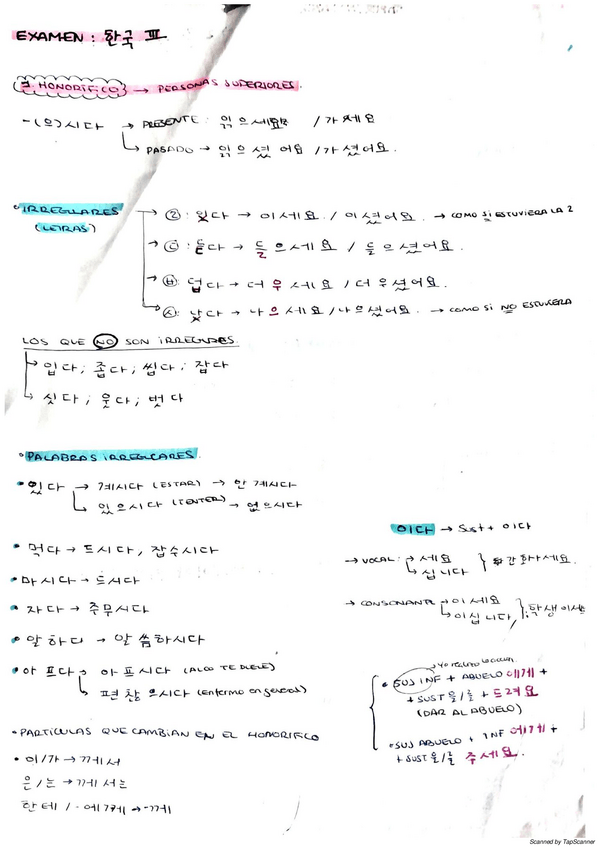 EXAMEN: 한국 III
EL HONORIFICO → PERSONAS SUPERIORES.
-(으)시다 → PRESENTE: 읽으세요 / 가세요
↳ PASADO → 읽으셨어요 / 가셨어요.
• IRREGULARES (LETRAS)
→ ㄹ: 있다 → 이세요. / 이셨어요. → COMO SI ESTUVIERA LA ㄹ
→ ㄷ: 듣다 → 들으세요 / 들으셨어요.
→ ㅂ: 덥다 → 더우세요 / 더우셨어요.
→ ㅅ: 낫다 → 나으세요 / 나으셨어요. → COMO SI NO ESTUVIERA
LOS QUE NO SON IRREGULARES.
→ 입다; 좁다; 씹다; 잡다
↳ 싯다; 웃다; 벗다
• PALABRAS IRREGULARES.
• 있다 → 계시다 (ESTAR) → 안 계시다
↳ 있으시다 (TENER) → 없으시다
• 먹다 → 드시다, 잡수시다
• 마시다 → 드시다
• 자다 → 주무시다
• 말하다 → 말씀하시다
• 아프다 → 아프시다 (ALGO TE DUELE)
↳ 편찮으시다 (enfermo en general)
• PARTÍCULAS QUE CAMBIAN EN EL HONORIFICO
• 이/가 → 께서
은/는 → 께서는
한테 / 에게 → 께
이다 → Sust + 이다
→ VOCAL: → 세요
↳ 십니다
간호사세요.
→ CONSONANTE → 이세요
↳ 이십니다
학생이세
• SUJ INF + ABUELO 에게 +
+ SUST 을/를 + 드려요
(DAR AL ABUELO)
• SUJ ABUELO + INF 에게 +
+ SUST 을/를 주세요.
Scanned by TapScanner